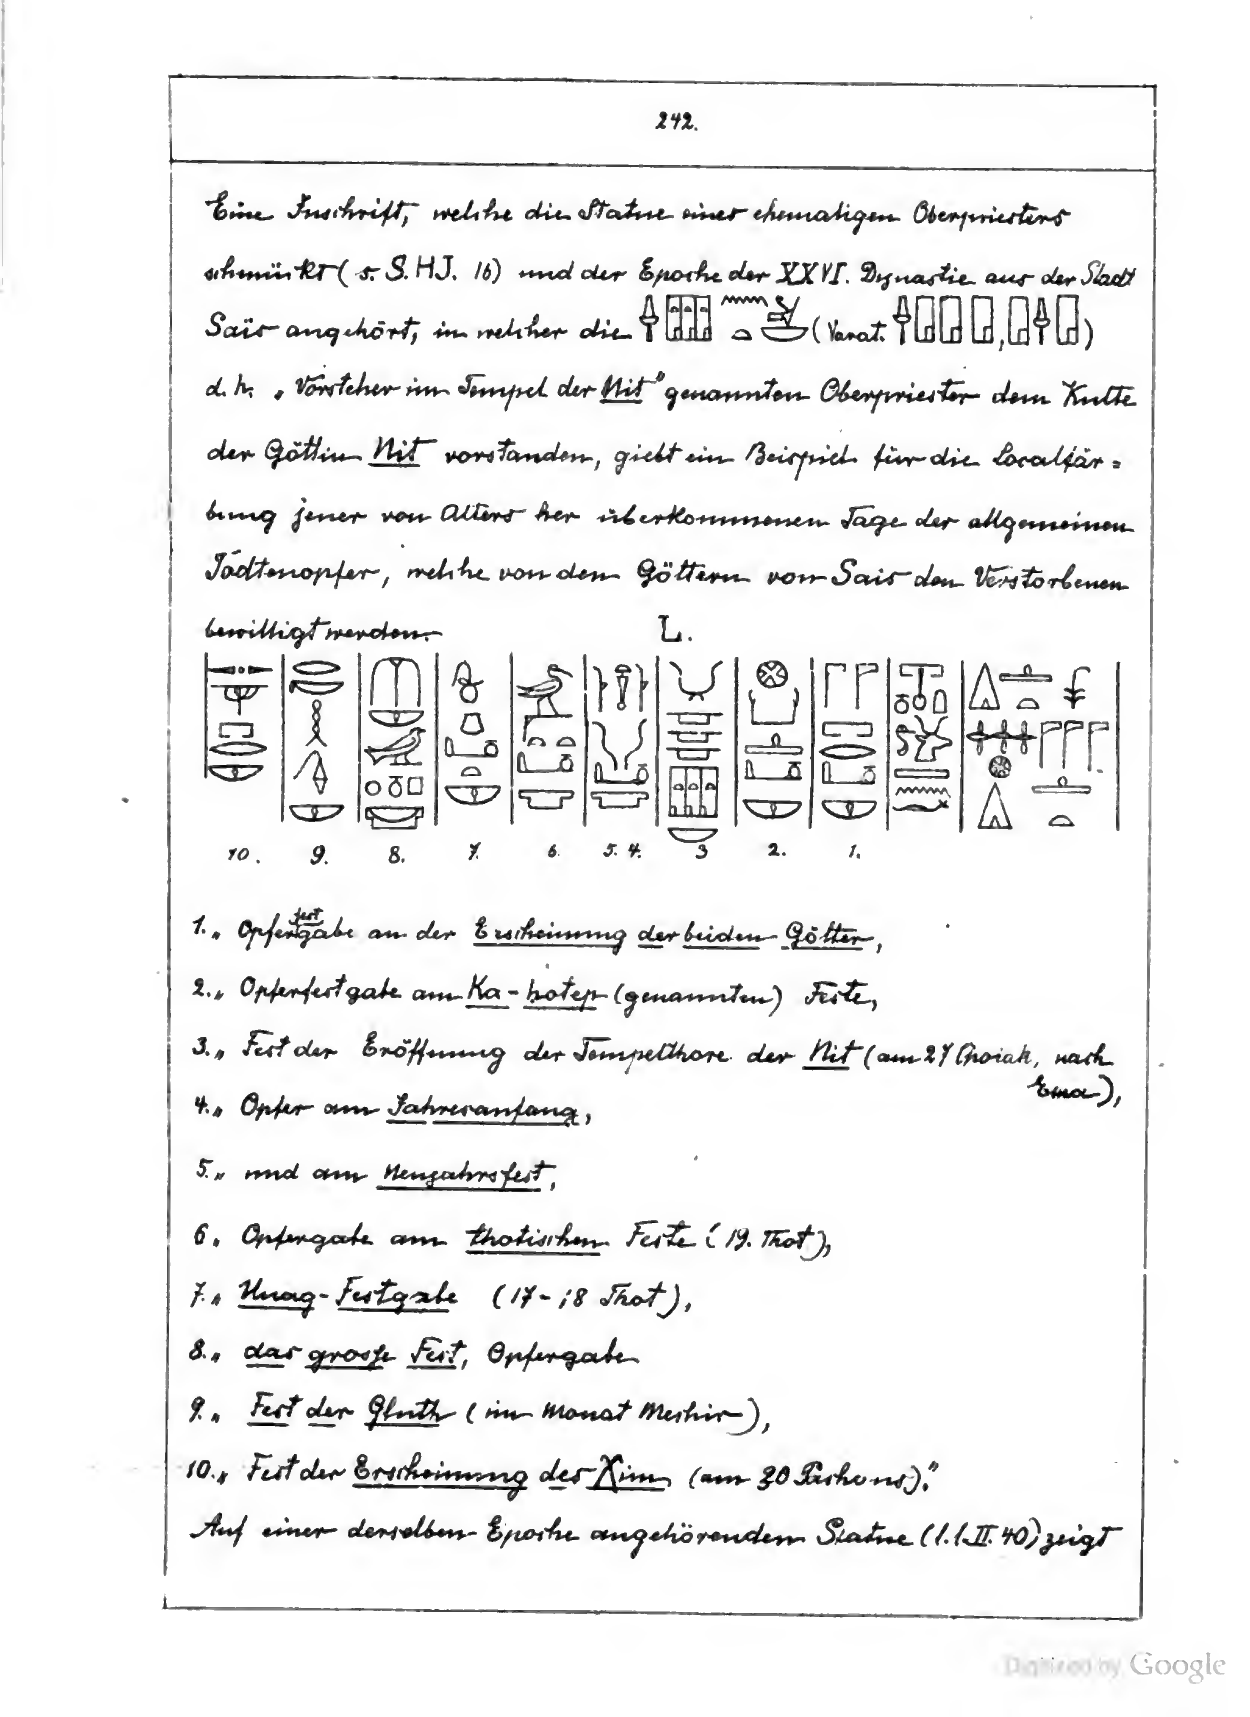 242.
Eine Inschrift, welche die Statue eines ehemaligen Oberpriesters
schmückt (s. S. HJ. 16) und der Epoche der XXVI. Dynastie aus der Stadt
Saïs angehört, in welcher die (Variat. , )
d. h. „Vorsteher im Tempel der Nit" genannten Oberpriester dem Kulte
der Göttin Nit vorstanden, giebt ein Beispiel für die Localfär=
bung jener von Alters her überkommenen Tage der allgemeinen
Todtenopfer, welche von den Göttern von Sais den Verstorbenen
bewilligt werden.
L.
10. 9. 8. 7. 6. 5. 4. 3 2. 1.
1., Opferfestgabe an der Erscheinung der beiden Götter,
2., Opferfestgabe am Ka-hotep (genannten) Feste,
3., Fest der Eröffnung der Tempelthore der Nit (am 27 Choiak, nach
Esna),
4., Opfer am Jahresanfang,
5., und am Neujahrsfest,
6., Opfergabe am thotischen Feste (19. Thot),
7., Uuag-Festgabe (17-18 Thot),
8., das grosse Fest, Opfergabe
9., Fest der Gluth (im Monat Mechir),
10., Fest der Erscheinung des Xim (am 30 Pachons)."
Auf einer derselben Epoche angehörenden Statue (l. l. II. 40) zeigt
Digitized by Google